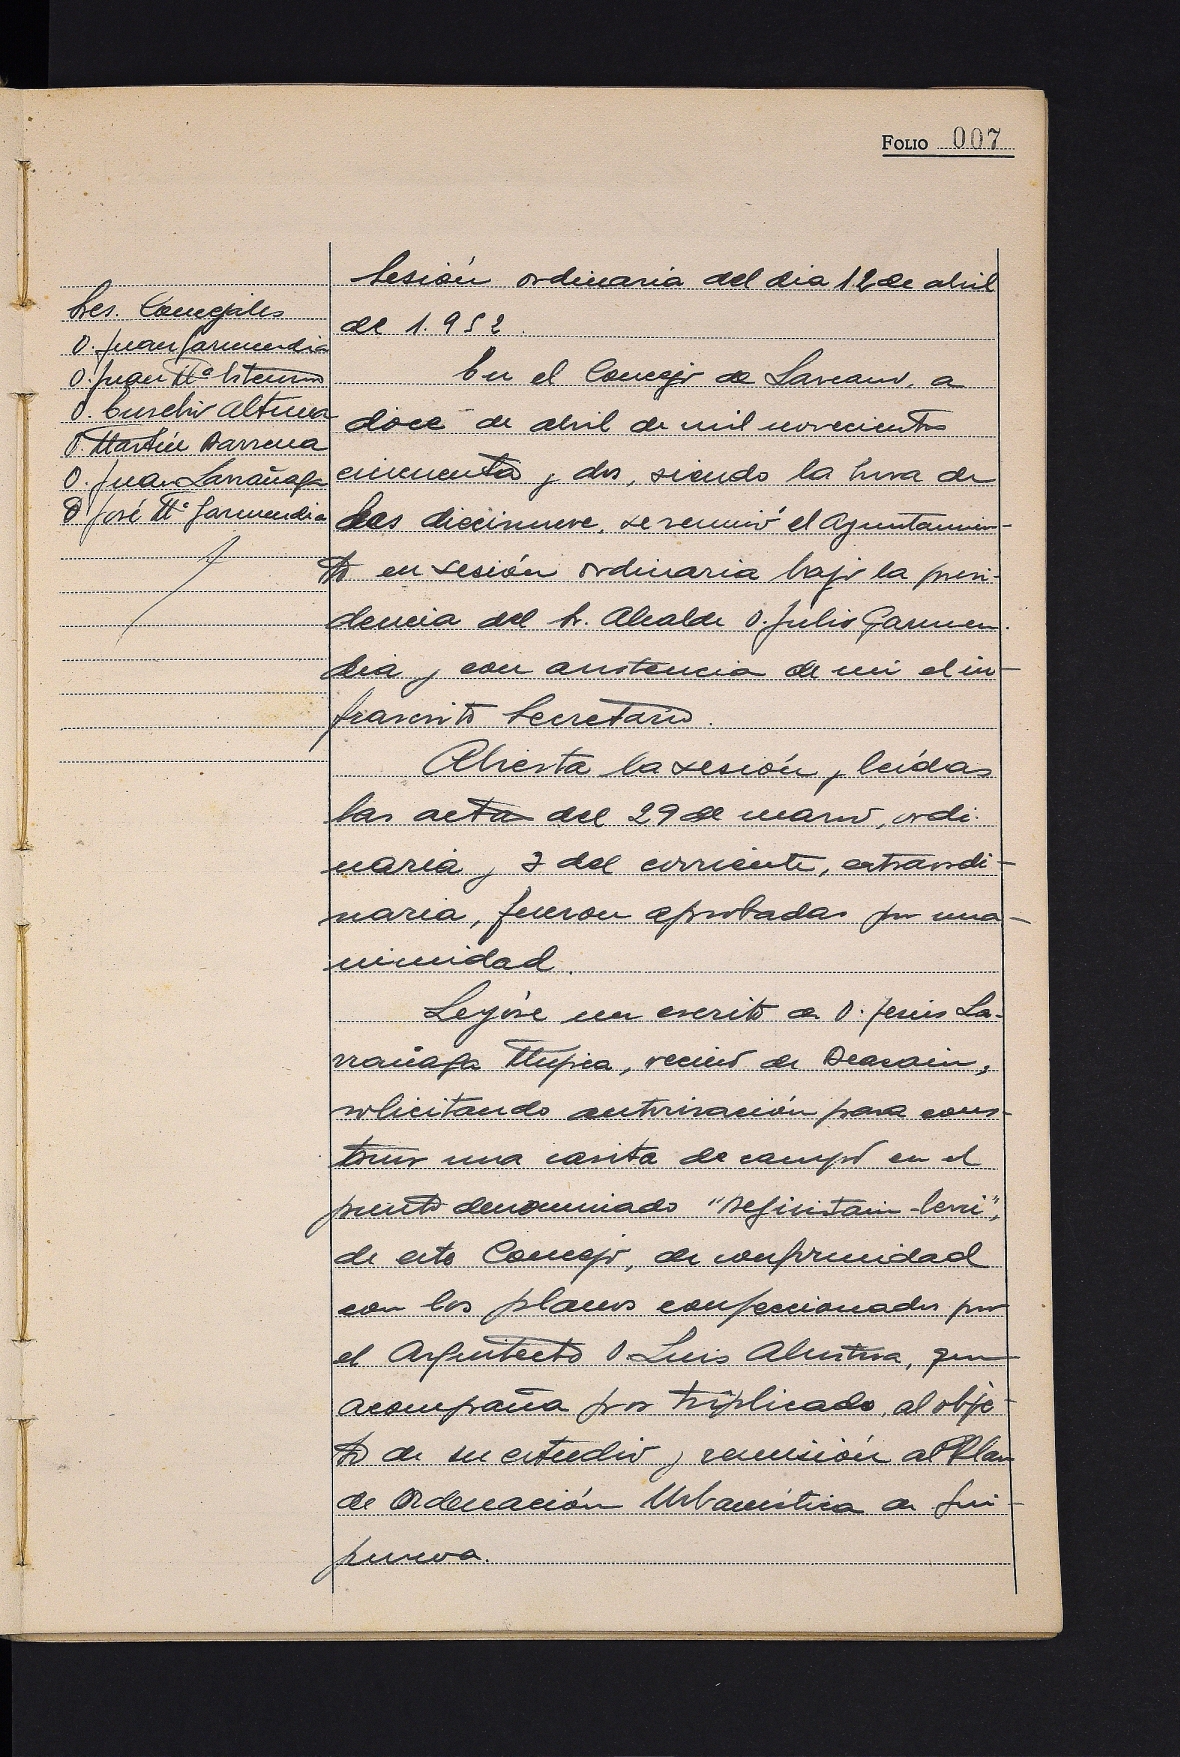 FOLIO 007
Sres. Concejales
D. Juan Garmendia
D. Juan Mª
D. Eusebio Altuna
D. Martín Barrena
D. Juan Larrañaga
D José Mª Garmendia
Sesión ordinaria del dia 12 de abril
de 1.952.
En el Concejo de Lazcano, a
doce de abril de mil novecientos
cincuenta y dos, siendo la hora de
las diecinueve, se reunió el Ayuntamien-
to en sesión ordinaria bajo la presi-
dencia del Sr. Alcalde D. Julio Garmen-
dia y con asistencia de mi el in-
frascrito Secretario.
Abierta la sesión y leídas
las actas del 29 de marzo, ordi-
naria y 3 del corriente, extraordi-
naria, fueron aprobadas por una-
nimidad.
Leyóse un escrito de D. Jesús La-
rrañaga Mujica, vecino de Beasain,
solicitando autorización para cons-
truir una casita de campo en el
punto denominado
de este Concejo, de conformidad
con los planos confeccionados por
el Arquitecto D Luis Alustiza, que
acompaña por triplicado, al obje-
to de su estudio y remisión al Plan
de Ordenación Urbanística de Gui-
púzcoa.